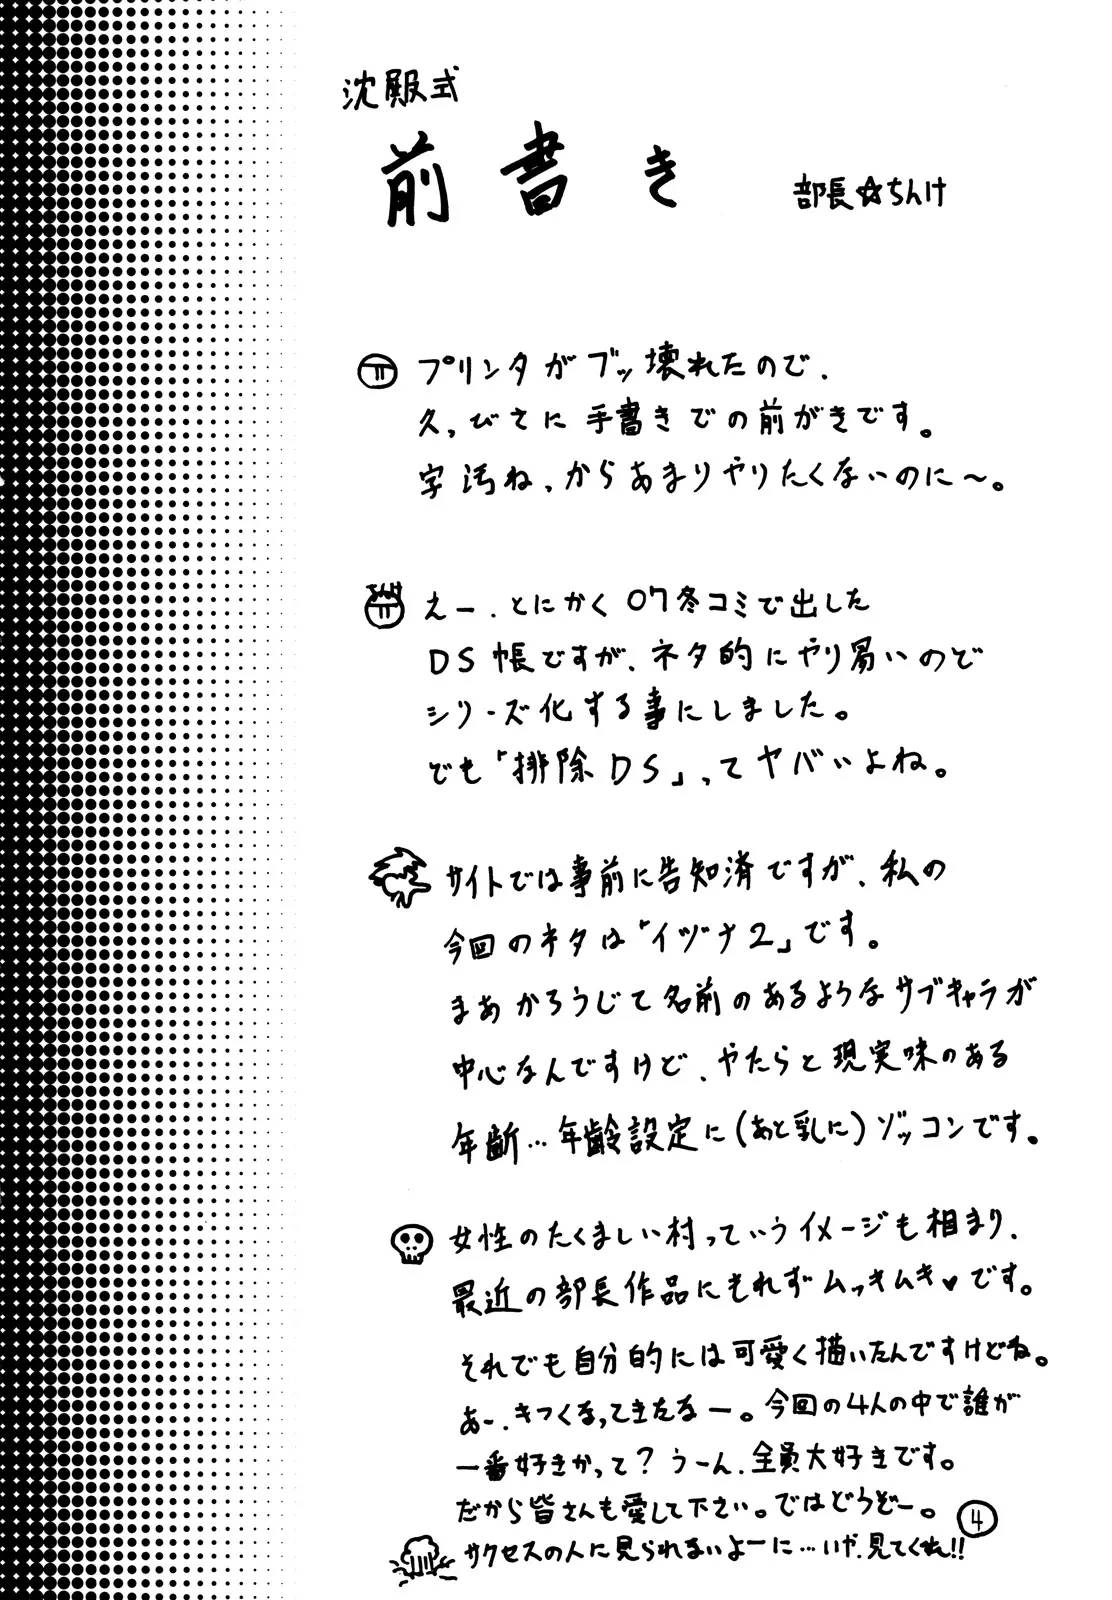 沈殿式
前書き
部長☆ちんけ
プリンタがブッ壊れたので、
久っびさに手書きでの前がきです。
字汚ねっからあまりやりたくないのに〜。
えー、とにかく07冬コミで出した
DS帳ですが、ネタ的にやり易いので
シリーズ化する事にしました。
でも「排除DS」ってヤバいよね。
サイトでは事前に告知済ですが、私の
今回のネタは「イヅナ2」です。
まあかろうじて名前のあるようなサブキャラが
中心なんですけど、やたらと現実味のある
年齢…年齢設定に(あと乳に)ゾッコンです。
女性のたくましい村っていうイメージも相まり、
最近の部長作品にそれずムっきムき♥です。
それでも自分的には可愛く描いたんですけどね。
あー、きつくなってきたなー。今回の4人の中で誰が
一番好きかって?うーん、全員大好きです。
だから皆さんも愛して下さい。ではどうぞー。
4
サクセスの人に見られないよーに…いや、見てくれ!!